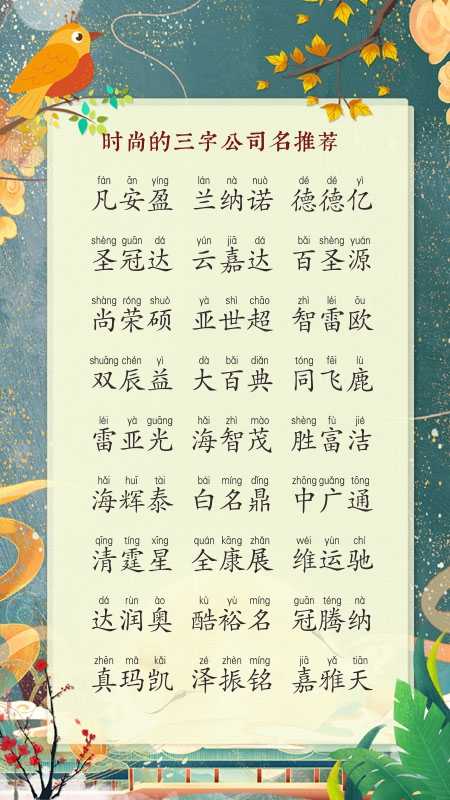 时尚的三字公司名推荐
fán ān yíng lán nà nuò dé dé yì
凡安盈 兰纳诺 德德亿
shèng guān dá yún jiā dá bǎi shèng yuán
圣冠达 云嘉达 百圣源
shàng róng shuò yà shì chāo zhì léi ōu
尚荣硕 亚世超 智雷欧
shuāng chén yì dà bǎi diǎn tóng fēi lù
双辰益 大百典 同飞鹿
léi yà guāng hǎi zhì mào shèng fù jié
雷亚光 海智茂 胜富洁
hǎi huī tài bái míng dǐng zhōng guǎng tōng
海辉泰 白名鼎 中广通
qīng tíng xīng quán kāng zhǎn wéi yùn chí
清霆星 全康展 维运驰
dá rùn ào kù yù míng guān téng nà
达润奥 酷裕名 冠腾纳
zhēn mǎ kǎi zé zhèn míng jiā yǎ tiān
真玛凯 泽振铭 嘉雅天